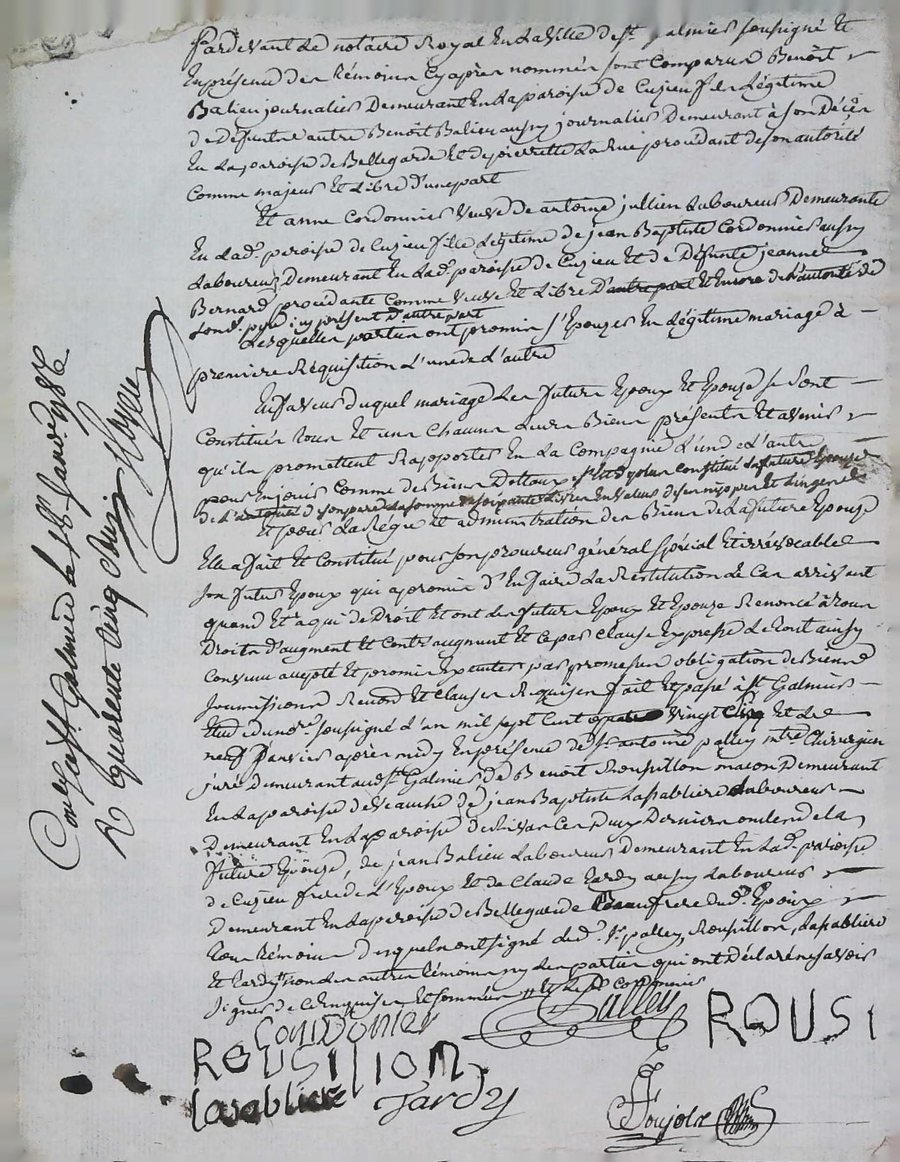 Pardevant Le notaire Royal En La ville de st galmier soussigné Et
En présence des témoins Cy après nommés sont Comparus Benoit
Balieu journalier Demeurant En La paroisse de Cuzieu fils Légitime
de Défunt autre Benoit Balieu aussy journalier Demeurant à son Décès
En La paroisse de Bellegarde Et de pierrette La Rue procédant de son autorité
Comme majeur Et Libre d'une part
Et anne Cordonnier veuve de antoine jullien Laboureur Demeurante
En Lad. paroisse de Cuzieu fille Légitime de jean Baptiste Cordonnier aussy
Laboureur Demeurant En Lad. paroisse de Cuzieu Et de Défunte jeanne
Bernard procédante Comme veuve Et Libre D'autre part Et Encore de L'autorité de
sond. père icy présent d'autre part
Lesquelles parties ont promis s'Epouser En Légitime mariage à
première Réquisition L'une de L'autre
En faveur duquel mariage Les future Epoux Et Epouze se sont
Constitués tous Et une Chacune Leurs Biens présents Et avenir
qu'ils promettent Raporter En La Compagnie L'un de L'autre
pour En jouir Comme de Biens Dotaux
de L'autorité de son père La somme de soixante Livres En valeur de ses nipes et Linges
Et pour La Régie Et administration des Biens de La future Epouze
Elle a fait Et Constitué pour son procureur général spécial Et irrévocable
son futur Epoux qui a promis d'En faire La Restitution Le Cas arrivant
quand Et à qui de Droit Et ont Les future Epoux Et Epouze Renoncé à tous
Droits d'augment Et Contr'augment Et ce par Clause Expresse Le tout ainsy
Convenu accepté Et promis exécuter par promesses obligation de Biens
soumissions Renond Et Clauses Requises fait Et passé à st Galmier
Etude du no.re soussigné L'an mil sept Cent quatre vingt Cinq Et Le
neuf Janvier après midy En présence de sr antoine palley mtre Chirurgien
juré Demeurant aud. st Galmier de Benoit Roussillon maçon Demeurant
En La paroisse de de jean Baptiste Lasablière Laboureur
Demeurant En La paroisse de Rivas Ces Deux Derniers oncles de La
future Epouze, de jean Balieu Laboureur Demeurant En Lad. paroisse
de Cuzieu frère de L'Epoux Et de Claude tardy aussy Laboureur
Demeurant En La paroisse de Bellegarde Beaufrere dud. Epoux
tous témoins desquels ont signé Led. sr palley, Roussillon, Lasablière
Et tardy non Les autres témoins ny Les parties qui ont Déclaré ne savoir
signer de Ce Enquis Et sommés Et Le d. cordonnier
Conidonier
Palley
ROUSI
ROUSILLIOM
lasabliere
Tardy
Poujols
Con.lé à St Galmier Le 18 Janv. 1785
R quarente Cinq